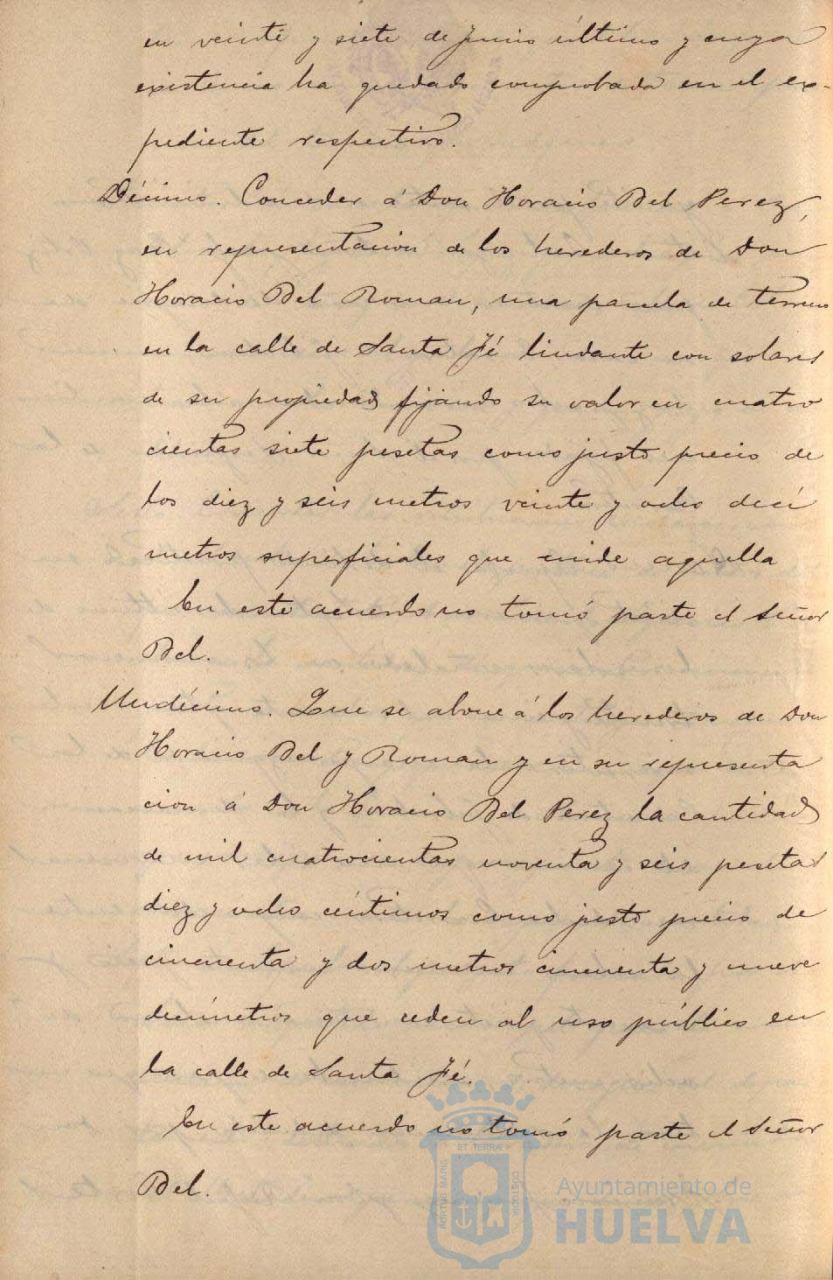 en veinte y siete de Junio último y cuya
existencia ha quedado comprobada en el ex-
pediente respectivo.
Décimo. Conceder á Don Horacio Bel Perez,
en representacion de los herederos de Don
Horacio Bel Roman, una parcela de terreno
en la calle de Santa Fé lindante con solares
de su propiedad fijando su valor en cuatro
cientas siete pesetas como justo precio de
los diez y seis metros veinte y ocho deci
metros superficiales que mide aquella
En este acuerdo no tomó parte el Señor
Bel.
Undécimo. Que se abone á los herederos de Don
Horacio Bel y Roman y en su representa
cion á Don Horacio Bel Perez la cantidad
de mil cuatrocientas noventa y seis pesetas
diez y ocho céntimos como justo precio de
cincuenta y dos metros cincuenta y nueve
decímetros que ceden al uso público en
la calle de Santa Fé.
En este acuerdo no tomó parte el Señor
Bel.
Ayuntamiento de
HUELVA